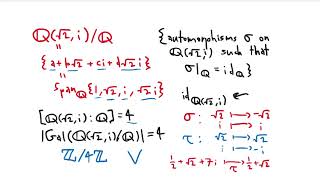 ℚ(√2, i)/ℚ
=
{a+b√2+ci+d√2i}
=
Span_ℚ{1,√2,i,√2i}
[ℚ(√2,i):ℚ]=4
|Gal(ℚ(√2,i)/ℚ)|=4
ℤ/4ℤ V
{automorphisms σ on
ℚ(√2,i) such that
σ|_ℚ = id_ℚ}
id_ℚ(√2,i) ←
σ: √2 ↦ -√2
i ↦ i
τ: √2 ↦ √2
i ↦ -i
1/2+√2+7i ↦_τ 1/2+√2